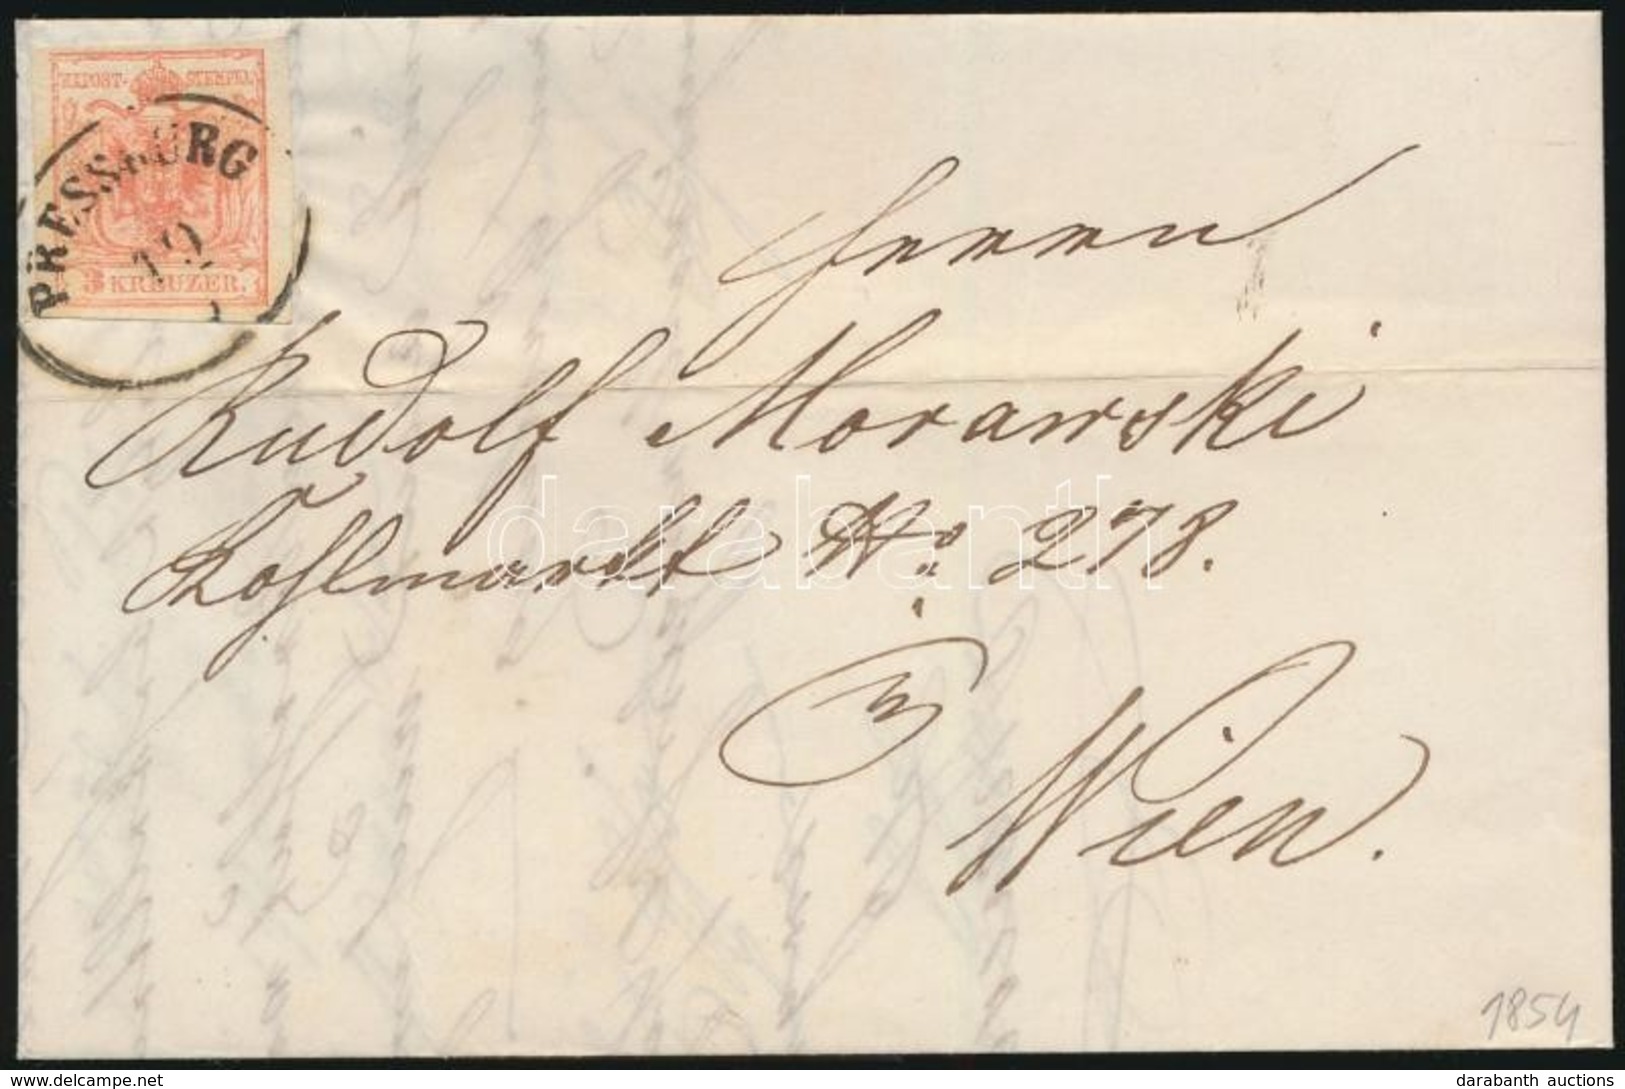 KKPOST-STEMPEL
PRESSBURG
19
3 KREUZER.
Herrn
Rudolf Morawski
Kohlmarkt No. 278.
Wien.
darabanth
1854
darabanth auctions